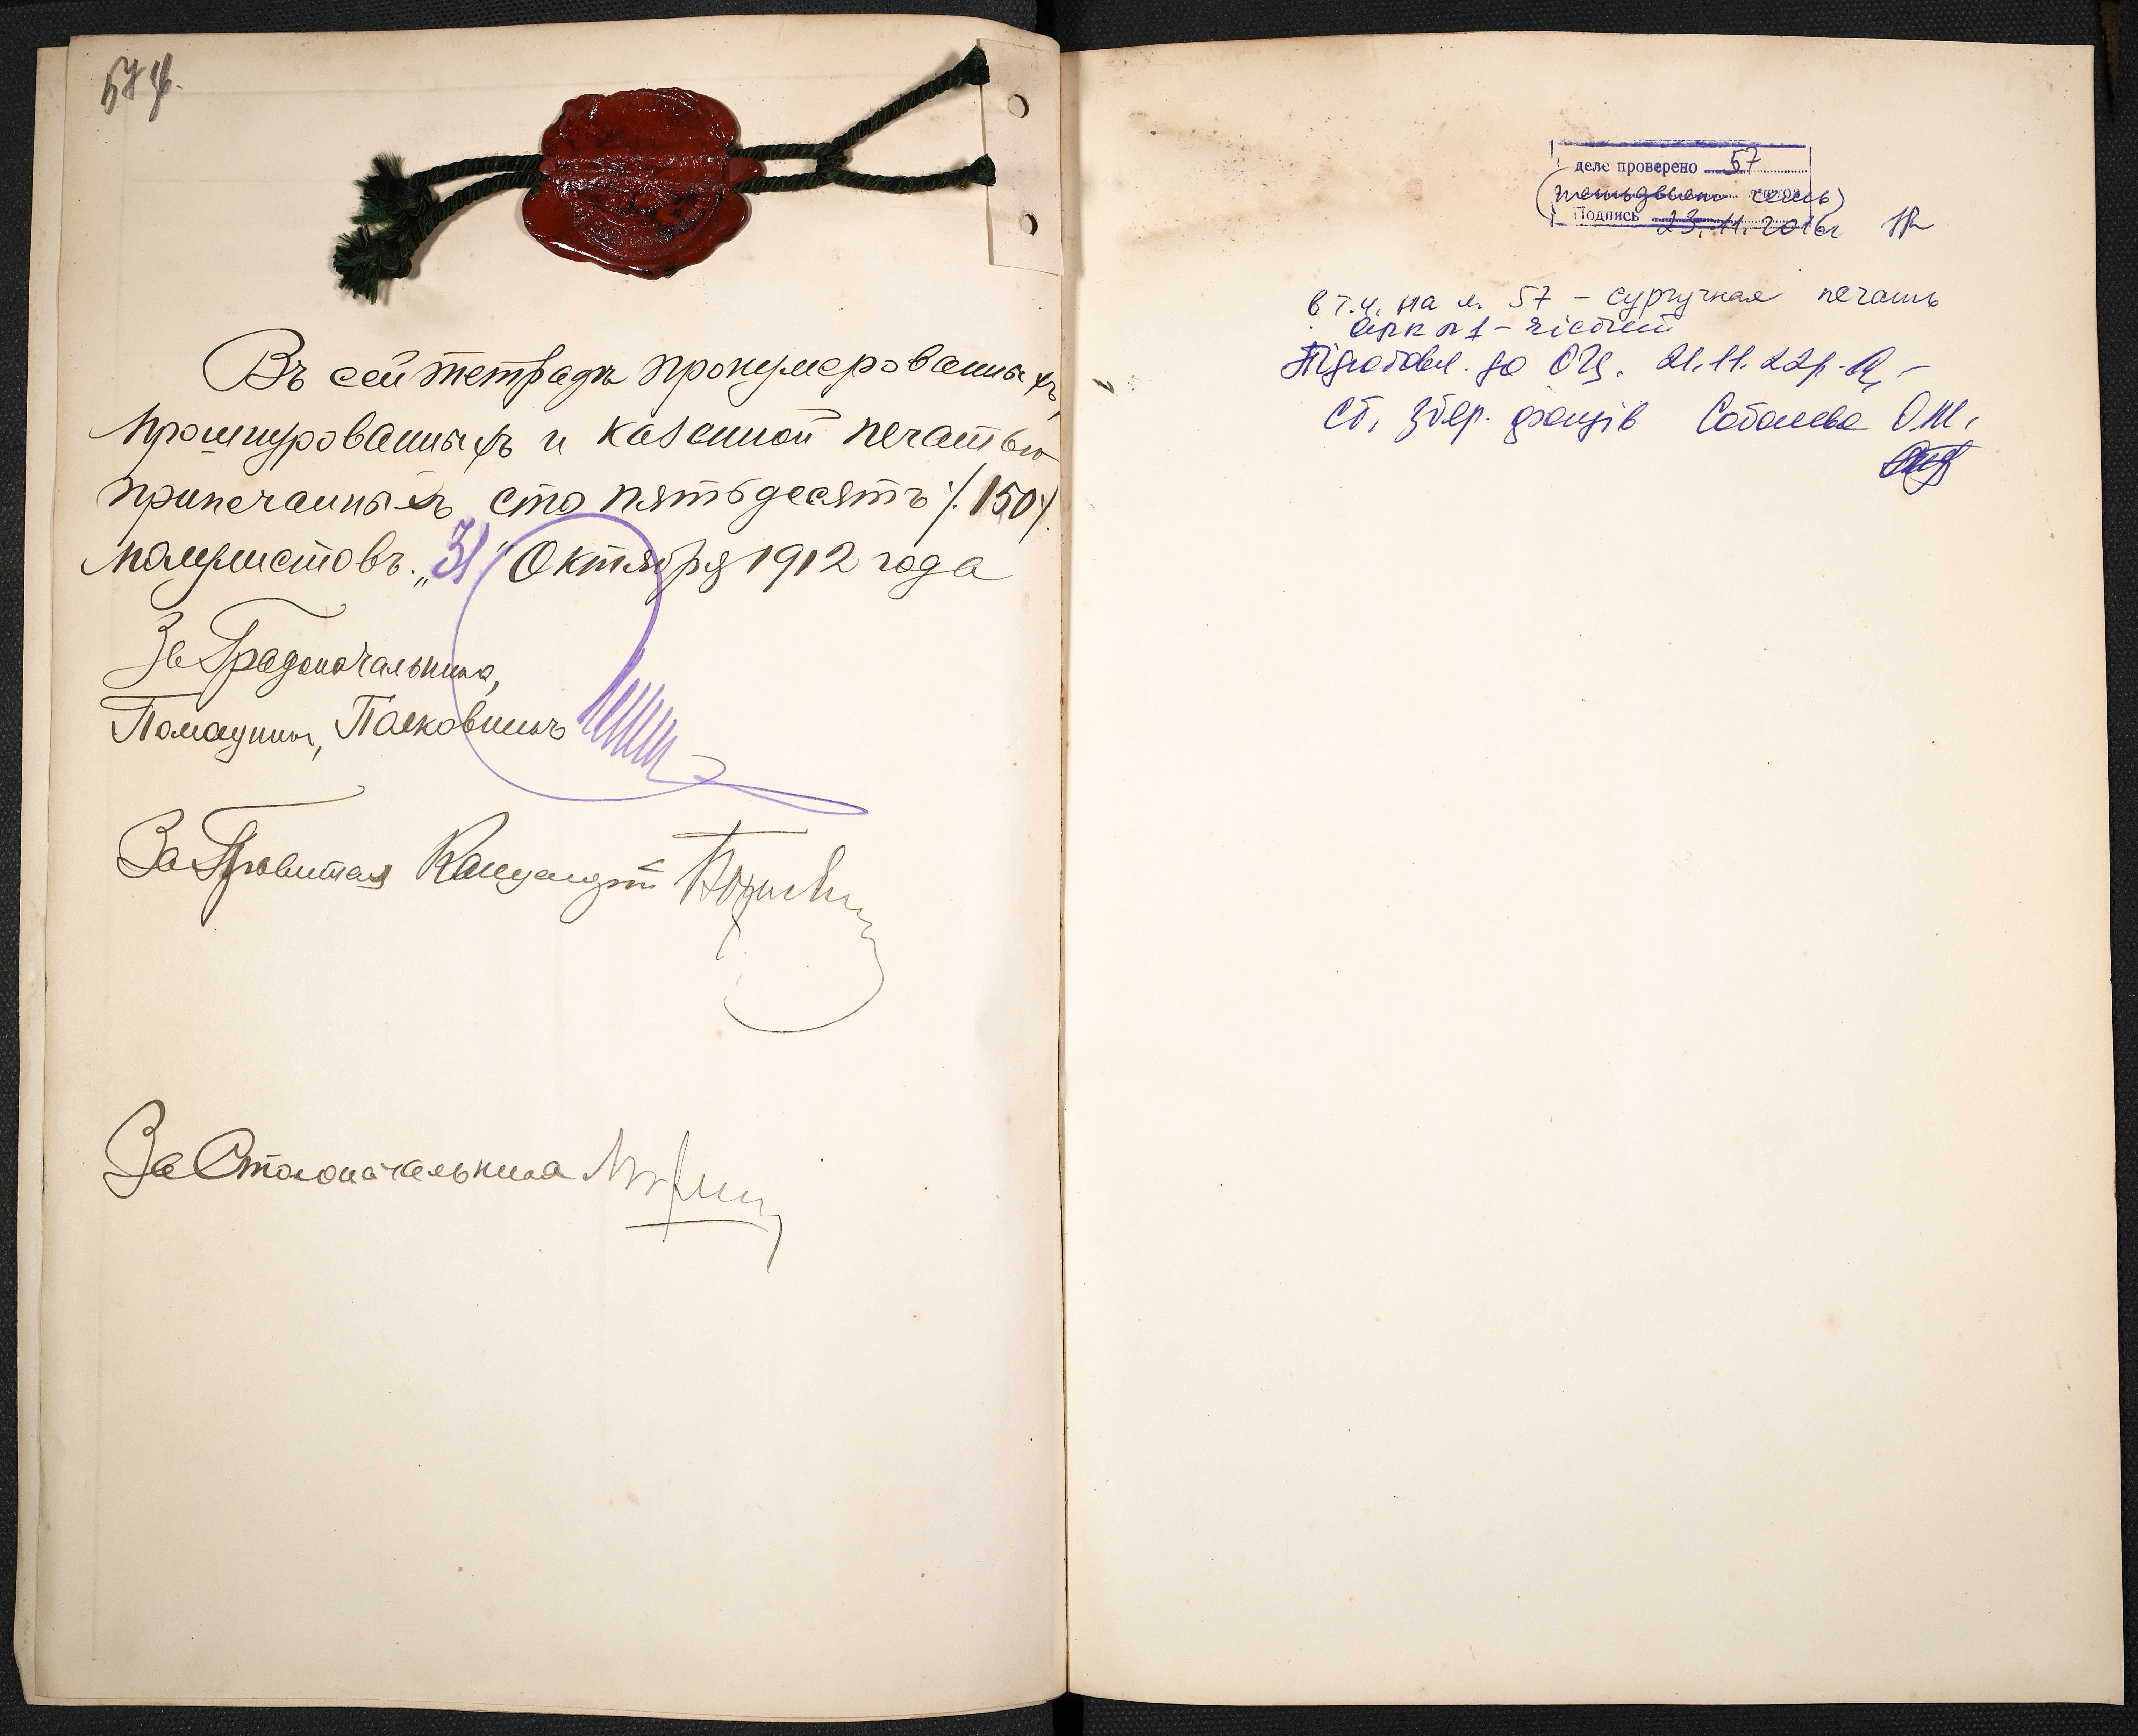 57
Въ сей тетради пронумерованныхъ,
прошнурованныхъ и казенной печатью
припечатанныхъ сто пятьдесятъ /.150/.
полулистовъ. „31" Октября 1912 года
За Градоначальника,
Помощникъ, Полковникъ
За Правителя Канцеляріи
За Столоначальника
деле проверено 57
(пятьдесят семь)
Подпись 23.11.2016г
в т.ч. на л. 57 – сургучная печать
арк n 1 – чистий
Підготовл. до ОЦ. 21.11.22р.
Ст. збер. фондів Соболева О.М.